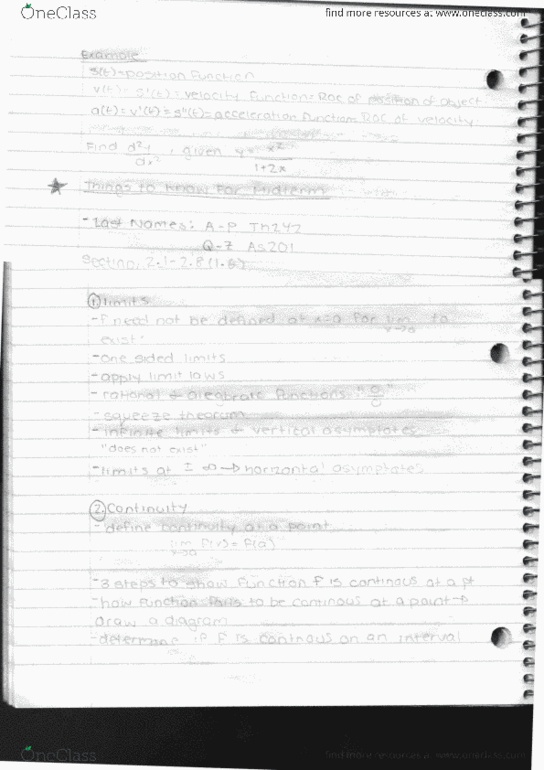 OneClass
find more resources at www.oneclass.com
Example
s(t)=position function
v(t)= s'(t)=velocity function=Roc of position of object
a(t)=v'(t)=s"(t)=acceleration function=Roc of velocity
Find d²y/dx², given y= x²/1+2x
Things to know for Midterm
-Last Names: A-P Th242
Q-Z As201
Section: 2.1-2.8 (1.8)
① limits
-f need not be defined at x=a for lim x→a to
exist.
-one sided limits
-apply limit laws
-rational + algebraic functions "0/0"
-squeeze theorem
-infinite limits + vertical asymptotes
"does not exist"
-limits at ± ∞ → horizontal asymptotes
② Continuity
-define continuity at a point
lim x→a f(x)=f(a)
-3 steps to show function f is continous at a pt
-how function fails to be continous at a point→
draw a diagram
-determine if f is continous on an interval
OneClass
find more resources at www.oneclass.com